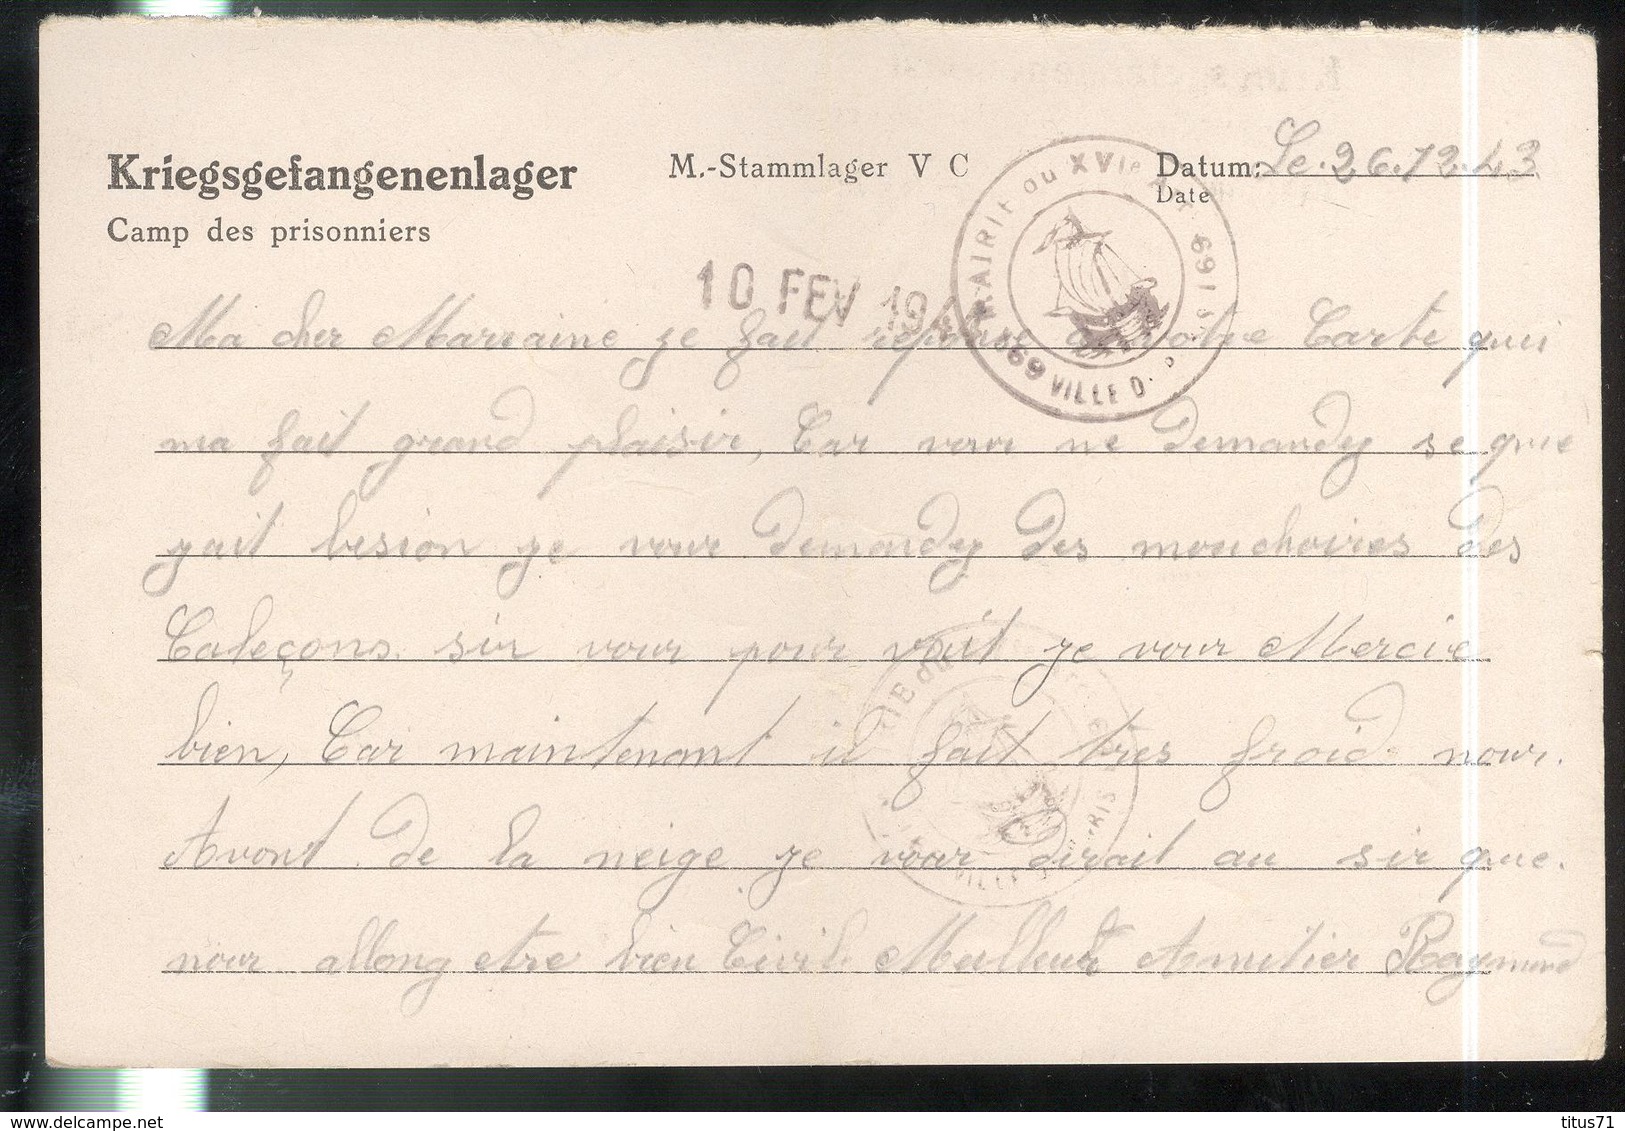 Kriegsgefangenenlager
Camp des prisonniers
M.-Stammlager V C
Datum: Le. 26.12.43
Date
MAIRIE DU XVIe
VILLE D
10 FEV 194
Ma cher Marraine je fait réponse a votre Carte qui
ma fait grand plaisir, Car vour ne Demandez se que
jait besion je vour Demandez Des mouchoires des
Caleçons. sir vour pour vait je vour Mercie
bien, Car maintenant il fait tres froid. nour.
Avont. de la neige je vour dirait au sir que.
nour allong etre bien Civil. Meilleur Amitier Raymond
titus71